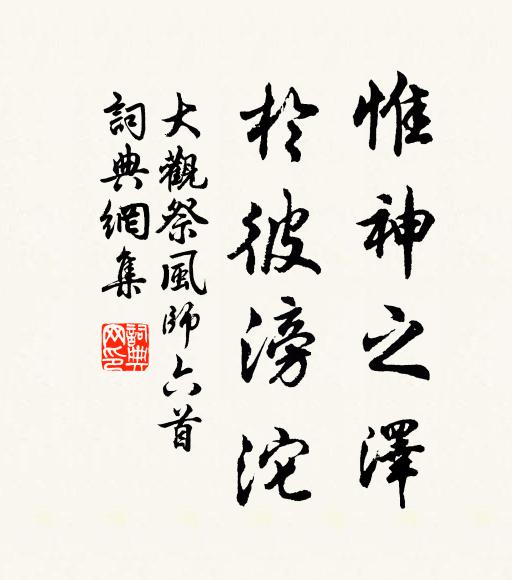 惟神之澤
於彼滂沱
大觀祭風師六首
詞典網集
詞典網印